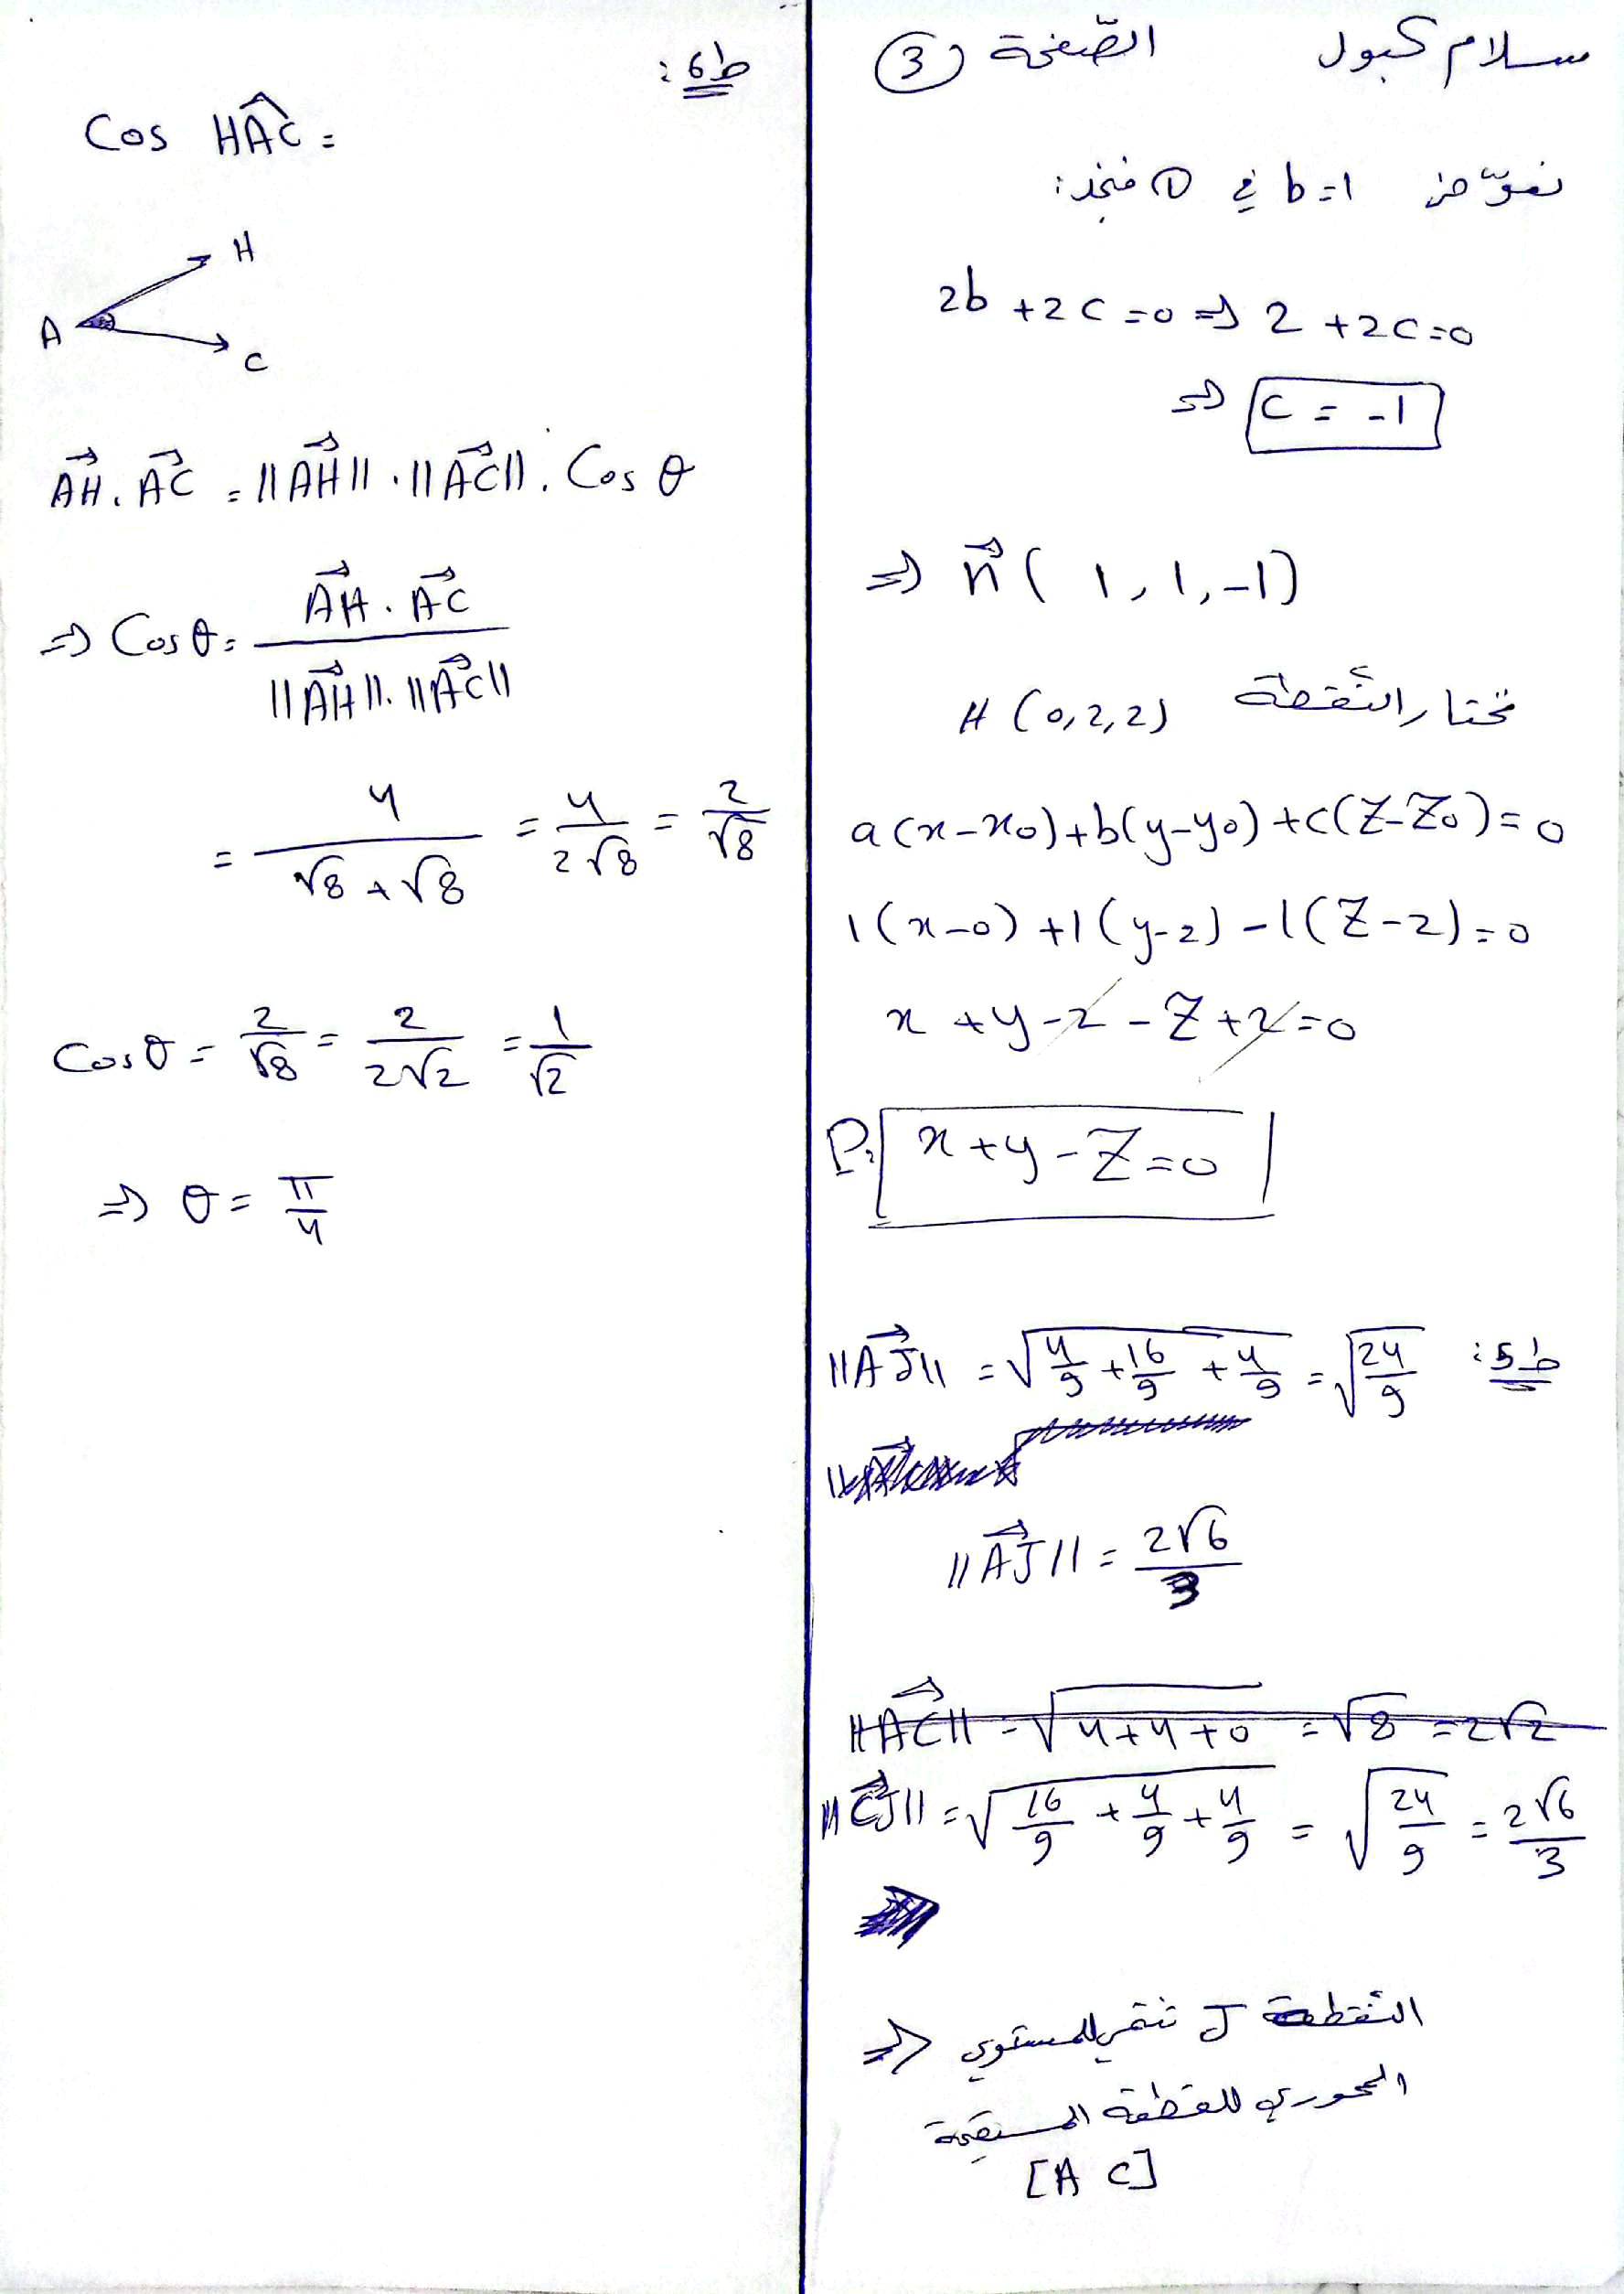 سلام كبول الصّفحة 3
نعوّض b=1 في ① فنجد:
2b + 2c = 0 ⇒ 2 + 2c = 0
⇒ c = -1
⇒ n⃗ ( 1, 1, -1)
نختار النّقطة H (0, 2, 2)
a(x-x₀)+b(y-y₀)+c(Z-Z₀)=0
1(x-0)+1(y-2)-1(Z-2)=0
x+y-2-Z+2=0
P: x+y-Z=0
ط5:
||AJ⃗|| = √(4/9 + 16/9 + 4/9) = √(24/9)
||AJ⃗|| = 2√6/3
||AC⃗|| = √(4+4+0) = √8 = 2√2
||CJ⃗|| = √(16/9 + 4/9 + 4/9) = √(24/9) = 2√6/3
⇒ النّقطة J تنتمي للمستوي
المحوري للقطعة المستقيمة
[A C]
ط6:
Cos HÂC =
H
A
C
AH⃗ . AC⃗ = ||AH⃗|| . ||AC⃗|| . Cos θ
⇒ Cos θ = AH⃗ . AC⃗ / ||AH⃗|| . ||AC⃗||
= 4/(√8 + √8) = 4/2√8 = 2/√8
Cos θ = 2/√8 = 2/2√2 = 1/√2
⇒ θ = π/4